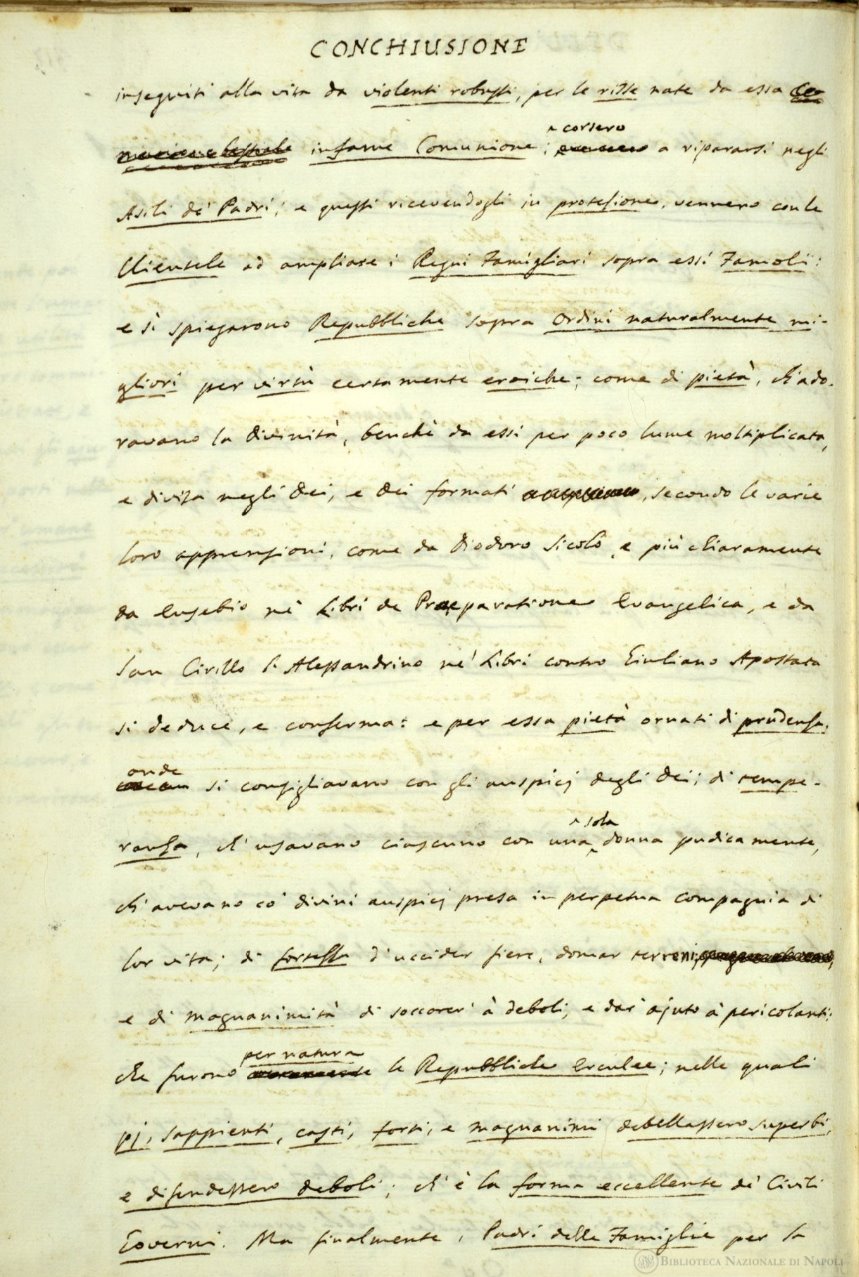 CONCHIUSIONE
inseguiti alla vita da violenti robusti, per le risse nate da essa
infame Comunione; corsero a ripararsi negli
Asili de' Padri; e questi ricevendogli in protezione, vennero con le
Clientele ad ampliare i Regni Famigliari sopra essi Famoli:
e si spiegarono Repubbliche sopra Ordini naturalmente mi-
gliori per virtù certamente eroiche; come di pietà, ch'ado-
ravano la Divinità, benchè da essi per poco lume moltiplicata,
e divisa negli Dei, e Dei formati, secondo le varie
loro apprensioni, come da Diodoro Sicolo, e più chiaramente
da Eusebio ne' Libri de Praeparatione Evangelica, e da
San Cirillo l'Alessandrino ne' Libri contro Giuliano Apostata
si deduce, e conferma: e per essa pietà ornati di prudenza,
onde si consigliavano con gli auspicj degli Dei; di tempe-
ranza, ch'usavano ciascuno con una sola donna pudicamente,
ch'avevano co' divini auspicj presa in perpetua compagnia di
lor vita; di fortezza d'uccider fiere, domar terreni,
e di magnanimità di soccorer' à deboli, e dar' ajuto à pericolanti:
che furono per natura le Repubbliche Erculee; nelle quali
pj, sappienti, casti, forti, e magnanimi debellassero superbi,
e difendessero deboli; ch'è la forma eccellente de' Civili
Governi. Ma finalmente i Padri delle Famiglie per la
BIBLIOTECA NAZIONALE DI NAPOLI